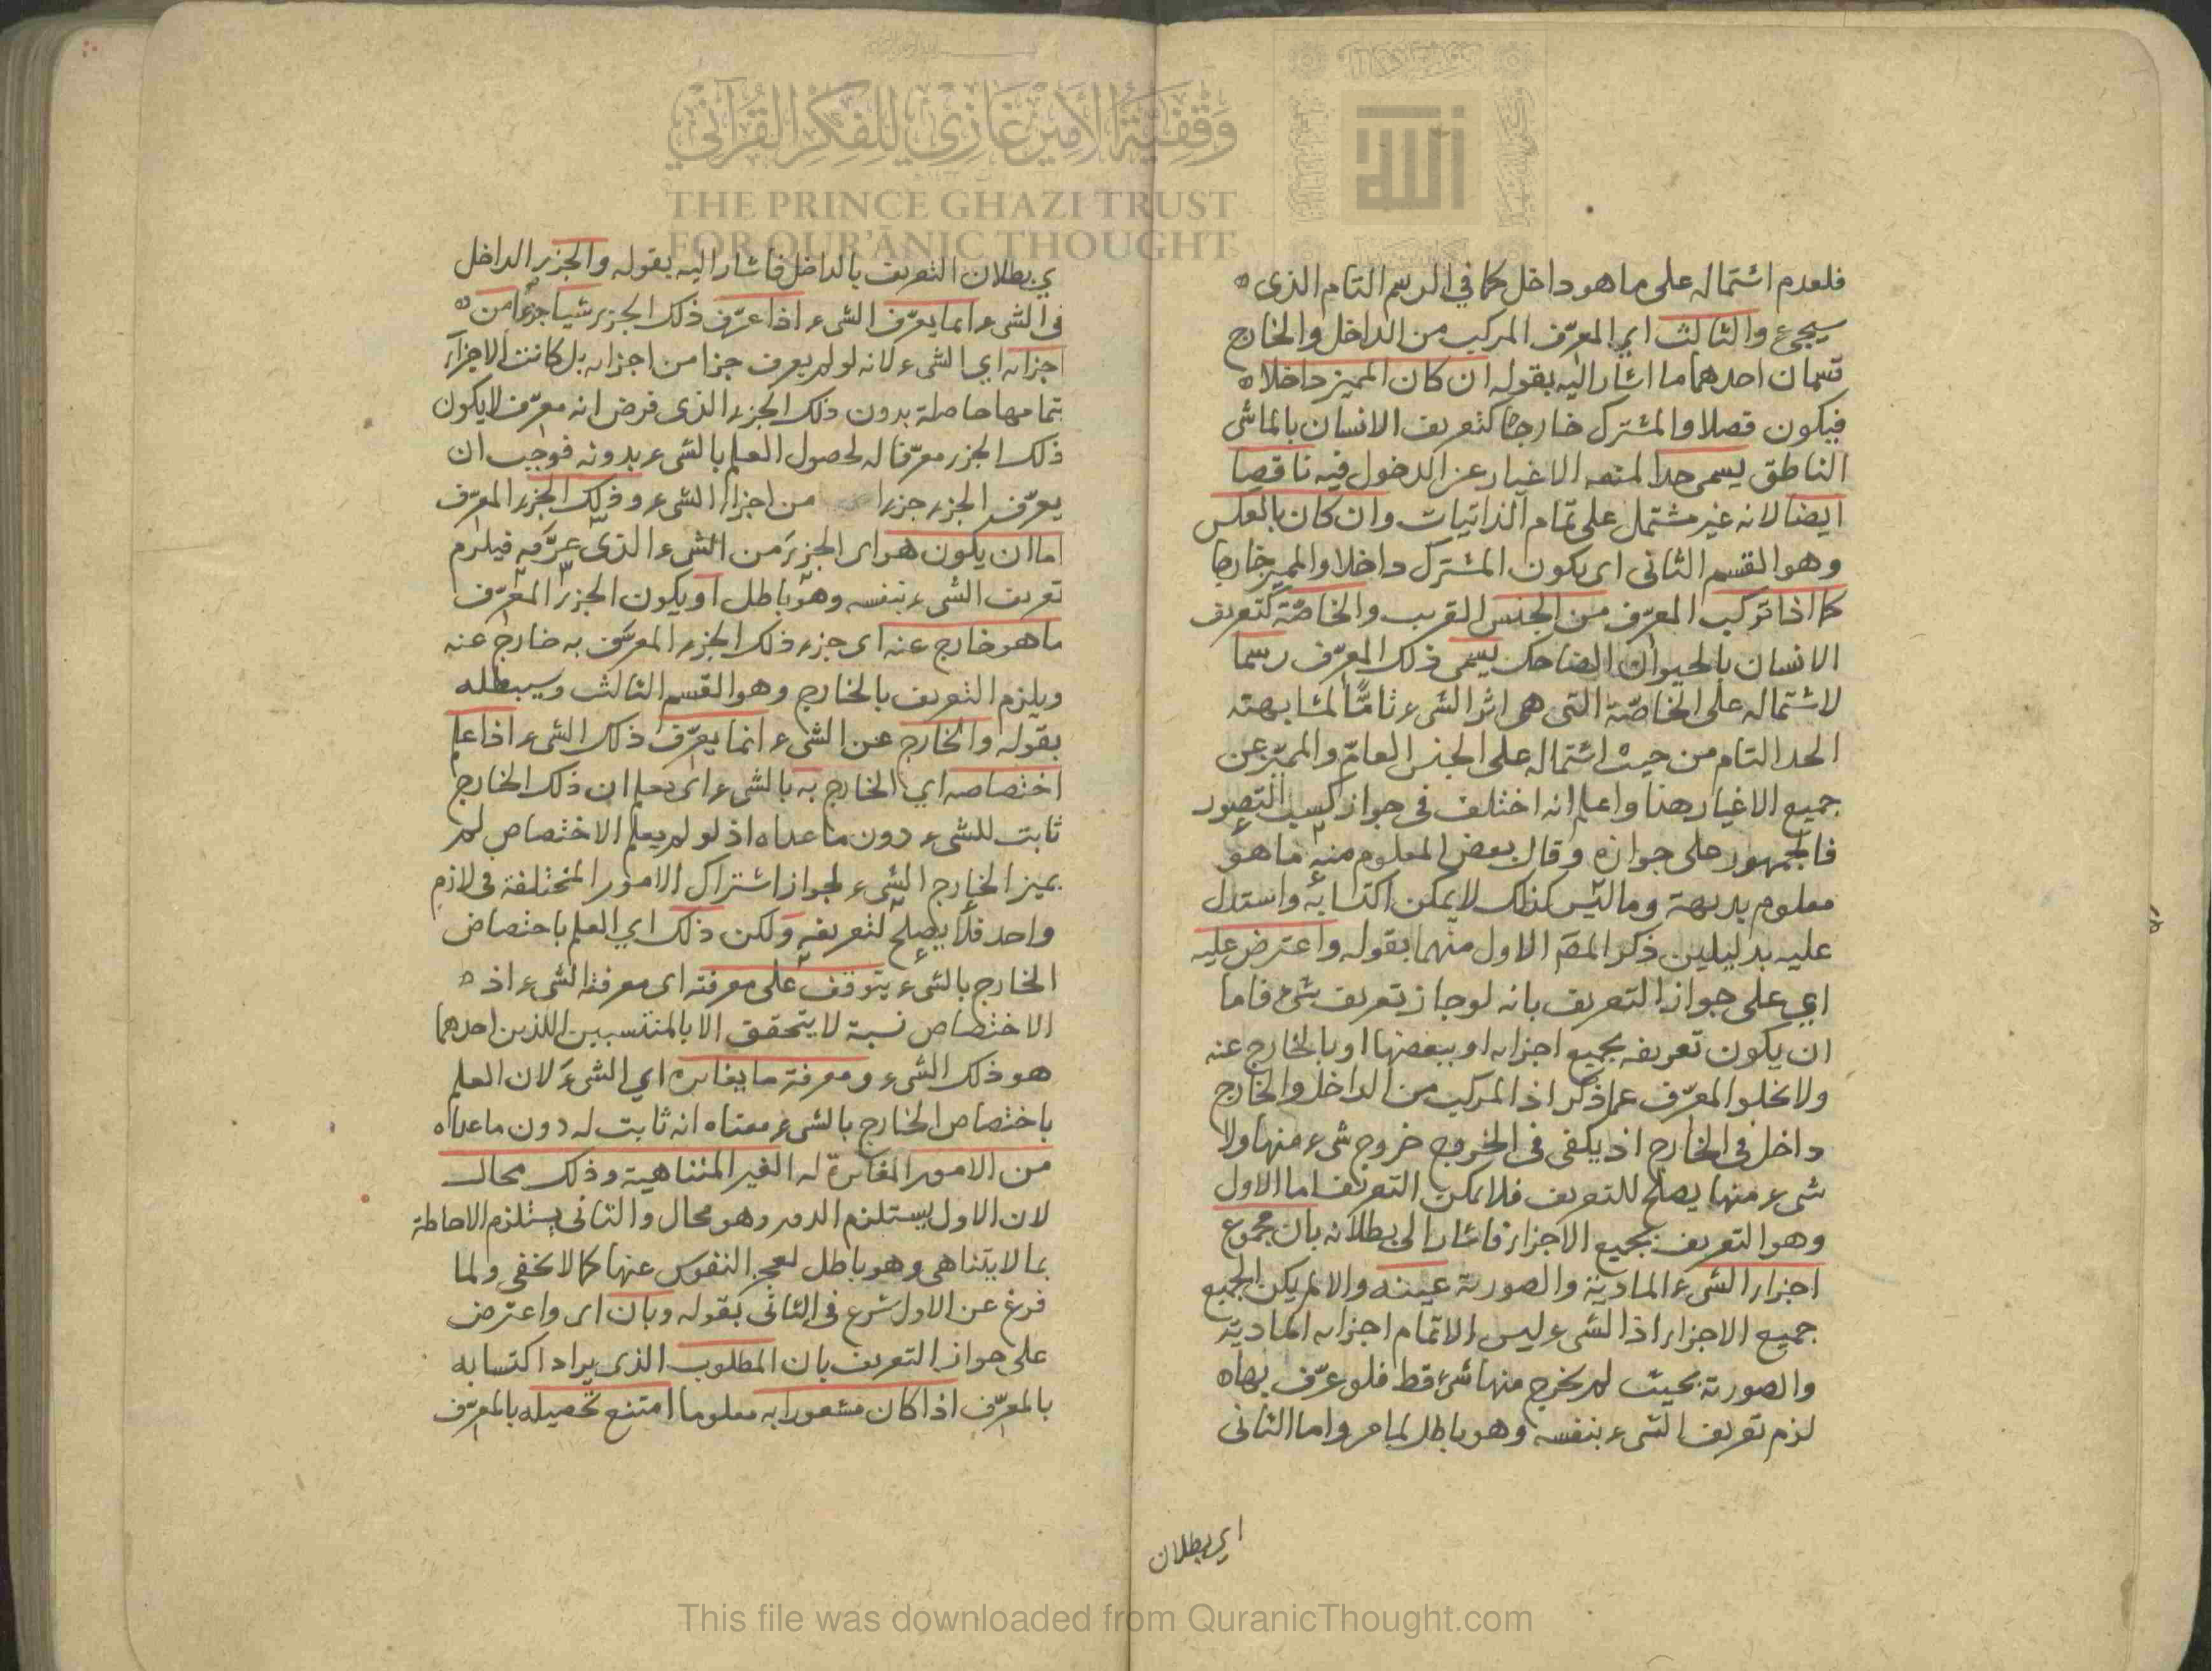 فلعدم اشتماله على ما هو داخل كما في الرسم التام الذى
سيجىء والثالث اي المعرّف المركب من الداخل والخارج
قسمان احدهما ما اشار اليه بقوله ان كان المميز داخلا
فيكون فصلا والمشترك خارجا كتعريف الانسان بالماشى
الناطق يسمى حدا لمنعه الاغيار عن الدخول فيه ناقصا
ايضا لانه غير مشتمل على تمام الذاتيات وان كان بالعكس
وهو القسم الثانى اى يكون المشترك داخلا والمميز خارجا
كما اذا تركب المعرّف من الجنس القريب والخاصّة كتعريف
الانسان بالحيوان الضاحك يسمى ذلك المعرّف رسما
لاشتماله على الخاصّة التى هى اثر الشىء تامّا لمشابهته
الحد التام من حيث اشتماله على الجنس العامّ والمميّز عن
جميع الاغيار هذا واعلم انه اختلف فى جواز كسب التصور
فالجمهور على جوازه وقال بعض المعلوم منه ما هو
معلوم بديهة وما ليس كذلك لا يمكن اكتسابه واستدل
عليه بدليلين ذكر المص الاول منهما بقوله واعترض عليه
اي على جواز التعريف بانه لو جاز تعريف شىء فاما
ان يكون تعريفه بجميع اجزائه او ببعضها او بالخارج عنه
ولا يخلوا المعرّف عما ذكر اذ المركب من الداخل والخارج
داخل فى الخارج اذ يكفى فى الخروج خروج شىء منها ولا
شىء منها يصلح للتعريف فلا يمكن التعريف اما الاول
وهو التعريف بجميع الاجزاء فاشار الى بطلانه بان مجموع
اجزاء الشىء المادية والصورية عينه والا لم يكن الجميع
جميع الاجزاء اذ الشىء ليس الا تمام اجزائه المادية
والصورية بحيث لم يخرج منها شىء قط فلو عرّف بها
لزم تعريف الشىء بنفسه وهو باطل لما مر واما الثانى
اى بطلان
ي بطلان التعريف بالداخل فاشار اليه بقوله والجزء الداخل
فى الشىء انما يعرّف الشىء اذا عرّف ذلك الجزء شيئا جزءا من
اجزائه اي الشىء لانه لو لم يعرف جزا من اجزائه بل كانت الاجزآء
بتمامها حاصلة بدون ذلك الجزء الذى فرض انه معرّف لا يكون
ذلك الجزء معرّفا له لحصول العلم بالشىء بدونه فوجب ان
يعرّف الجزء جزءا من اجزاء الشىء وذلك الجزء المعرّف
اما ان يكون هو اى الجزء من الشىء الذى عرّفه فيلزم
تعريف الشىء بنفسه وهو باطل او يكون الجزء المعرّف
ما هو خارج عنه اى جزء ذلك الجزء المعرّف به خارج عنه
ويلزم التعريف بالخارج وهو القسم الثالث وسيبطله
بقوله والخارج عن الشىء انما يعرّف ذلك الشىء اذا علم
اختصاصه اي الخارج به بالشىء اى يعلم ان ذلك الخارج
ثابت للشىء دون ما عداه اذ لو لم يعلم الاختصاص لم
يميز الخارج الشىء لجواز اشتراك الامور المختلفة فى لازم
واحد فلا يصلح لتعريفه ولكن ذلك اي العلم باختصاص
الخارج بالشىء يتوقف على معرفته اى معرفة الشىء اذ
الاختصاص نسبة لا يتحقق الا بالمنتسبين اللذين احدهما
هو ذلك الشىء ومعرفة ما يغايره اي الشىء لان العلم
باختصاص الخارج بالشىء معناه انه ثابت له دون ما عداه
من الامور المغايرة له الغير المتناهية وذلك محال
لان الاول يستلزم الدور وهو محال والثانى يستلزم الاحاطة
بما لا يتناهى وهو باطل لعجز النفوس عنها كما لا يخفى ولما
فرغ عن الاول شرع فى الثانى بقوله وبان اى واعترض
على جواز التعريف بان المطلوب الذى يراد اكتسابه
بالمعرّف اذا كان مشعورا به معلوما امتنع تحصيله بالمعرّف
وقفية الأمير غازي للفكر القرآني
THE PRINCE GHAZI TRUST
FOR QUR'ĀNIC THOUGHT
This file was downloaded from QuranicThought.com